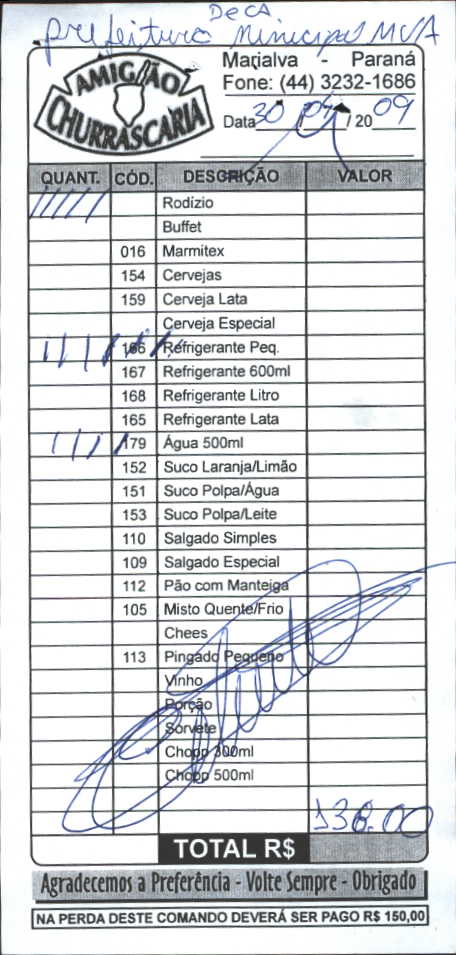 DeCA
prefeitura Municipal MVA
AMIGÃO
CHURRASCARIA
Marialva - Paraná
Fone: (44) 3232-1686
Data 30 / 04 / 2009
QUANT. CÓD. DESCRIÇÃO VALOR
Rodízio
Buffet
016 Marmitex
154 Cervejas
159 Cerveja Lata
Cerveja Especial
166 Refrigerante Peq.
167 Refrigerante 600ml
168 Refrigerante Litro
165 Refrigerante Lata
179 Água 500ml
152 Suco Laranja/Limão
151 Suco Polpa/Água
153 Suco Polpa/Leite
110 Salgado Simples
109 Salgado Especial
112 Pão com Manteiga
105 Misto Quente/Frio
Chees
113 Pingado Pequeno
Vinho
Porção
Sorvete
Chopp 300ml
Chopp 500ml
138.00
TOTAL R$
Agradecemos a Preferência - Volte Sempre - Obrigado
NA PERDA DESTE COMANDO DEVERÁ SER PAGO R$ 150,00